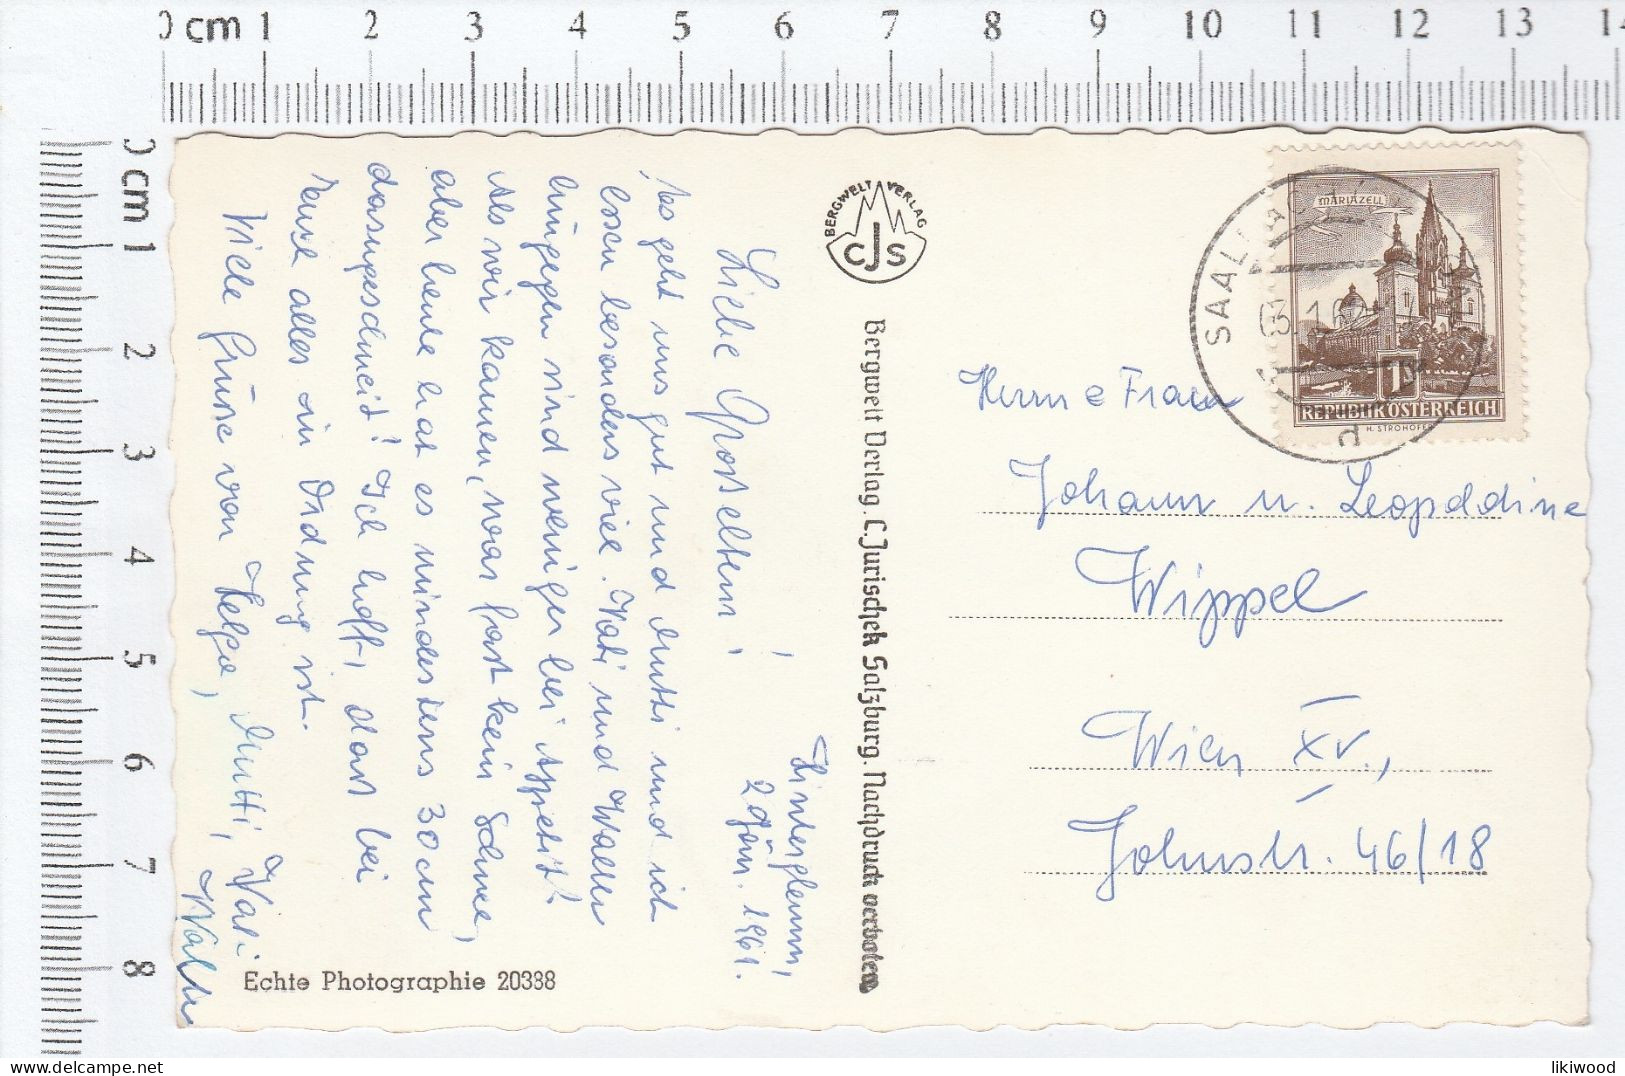 0 cm 1 2 3 4 5 6 7 8 9 10 11 12 13 14
0 cm 1 2 3 4 5 6 7 8
Hinterglemm,
2. Jän. 1961.
Liebe Grosseltern!
Es geht uns gut und Mutti und ich
essen besonders viel. Vati und Walter
hingegen sind weniger bei Appetit.
Als wir kamen, war fast kein Schnee,
aber heute hat es mindestens 30 cm
dasigeschneit! Ich hoffe, dass bei
alles in Ordnung ist.
Viele Grüsse von Helga, Mutti, Vati
Walter
Echte Photographie 20388
BERGWELT VERLAG
CJS
Bergwelt Verlag. C. Jurischek Salzburg. Nachdruck verboten
MARIAZELL
1 S
REPUBLIK ÖSTERREICH
H. STROHOFER
SAALBACH
3.-1.61
d
Herrn e Frau
Johann u. Leopoldine
Wippel
Wien XV.,
Johnstr. 46/18
likiwood